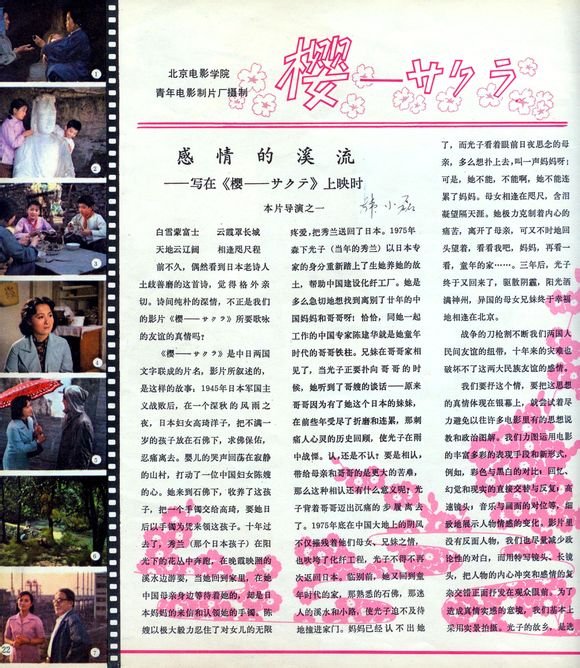 北京电影学院
青年电影制片厂摄制
樱——サクラ
感情的溪流
——写在《樱——サクラ》上映时
本片导演之一 韩小磊
白雪蒙富士 云霞罩长城
天地云辽阔 相逢咫尺程
前不久，偶然看到日本老诗人
土歧善麿的这首诗，觉得格外亲
切。诗间纯朴的深情，不正是我们
的影片《樱——サクラ》所要歌咏
的友谊的真情吗？
《樱——サクラ》是中日两国
文字联成的片名，影片所叙述的，
是这样的故事：1945年日本军国主
义战败后，在一个深秋的风雨之
夜，日本妇女高琦洋子，把不满一
岁的孩子放在石佛下，求佛保佑，
忍痛离去。婴儿的哭声回荡在寂静
的山村，打动了一位中国妇女陈嫂
的心。她来到石佛下，收养了这孩
子，把一个手镯交给高琦，要她日
后以手镯为凭来领这孩子。十年过
去了，秀兰（那个日本孩子）在阳
光下的花丛中奔跑，在晚霞映照的
溪水边游耍，当她回到家里，在她
中国母亲身边等待着她的，却是日
本妈妈的来信和认领她的手镯。陈
嫂以极大毅力忍住了对女儿的无限
疼爱，把秀兰送回了日本。1975年
森下光子（当年的秀兰）以日本专
家的身分重新踏上了生她养她的故
土，帮助中国建设化纤工厂。她是
多么急切地想找到离别了廿年的中
国妈妈和哥哥呀；恰恰，同她一起
工作的中国专家陈建华就是她童年
时代的哥哥铁柱。兄妹在哥哥家相
见了，当光子正要扑向哥哥的时
候，她听到了哥嫂的谈话——原来
哥哥因为有了她这个日本的妹妹，
在前些年受尽了折磨和连累，那刺
痛人心灵的历史回顾，使光子在雨
中战慄。认，还是不认？要是相认，
带给母亲和哥哥的是更大的苦难，
那么这种相认还有什么意义呢；光
子背着哥哥迈出沉痛的步履离去
了。1975年底在中国大地上的阴风
不仅摧残着他们母女、兄妹之情，
也吹垮了化纤工程，光子不得不再
次返回日本。临别前，她又回到童
年时代的家，那熟悉的石佛，那迷
人的溪水和小路，使光子迫不及待
地撞进家门。妈妈已经认不出她
了，而光子看着眼前日夜思念的母
亲，多么想扑上去，叫一声妈妈呀；
可是，她不能，不能啊，她不能连
累了妈妈。母女相逢在咫尺，含泪
凝望隔天涯。她极力克制着内心的
痛苦，离开了母亲，可又不时地回
头望着，看看我吧，妈妈，再看一
看，童年的家……。三年后，光子
终于又回来了，驱散阴霾，阳光洒
满神州，异国的母女兄妹终于幸福
地相逢在北京。
战争的刀枪割不断我们两国人
民间友谊的纽带，十年来的灾难也
破坏不了这两大民族友谊的感情。
我们要抒这个情，要把这思想
的真情体现在银幕上，就尝试着尽
力避免以往许多电影里有的思想说
教和政治图解。我们力图运用电影
的丰富多彩的表现手段和新形式，
例如，彩色与黑白的对比；回忆、
幻觉和现实的直接交替与反复；高
速镜头；音乐与画面的对位等，细
致地展示人物情感的变化。影片里
没有反面人物，我们也尽量减少政
论性的对白，而用特写镜头、长镜
头，把人物的内心冲突和感情的复
杂交错正面抒发在观众眼前。为了
造成真情实感的意境，我们基本上
采用实景拍摄。光子的故乡，是选
1
2
3
4
5
6
7
22